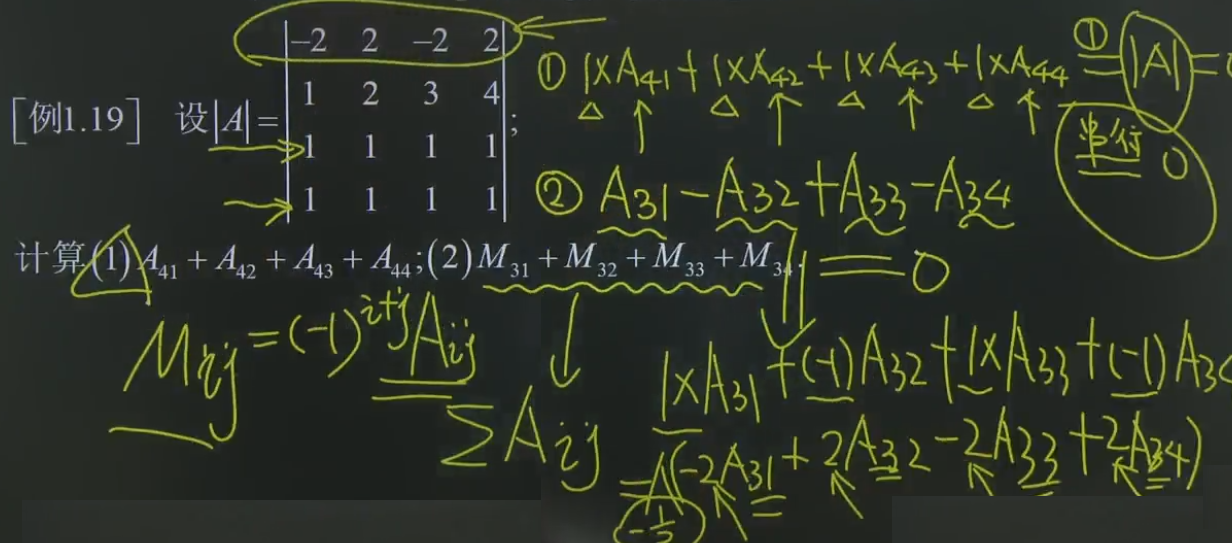 [例1.19] 设|A|=
|-2 2 -2 2|
|1 2 3 4|
|1 1 1 1|
|1 1 1 1|;
计算(1)A₄₁+A₄₂+A₄₃+A₄₄;(2)M₃₁+M₃₂+M₃₃+M₃₄.
① 1×A₄₁+1×A₄₂+1×A₄₃+1×A₄₄ ①= |A| =
串行 0
② A₃₁-A₃₂+A₃₃-A₃₄
=0
Mij=(-1)^{i+j}Aij
ΣAij
1×A₃₁+(-1)A₃₂+1×A₃₃+(-1)A₃
(-2A₃₁+2A₃₂-2A₃₃+2A₃₄)
-1/2